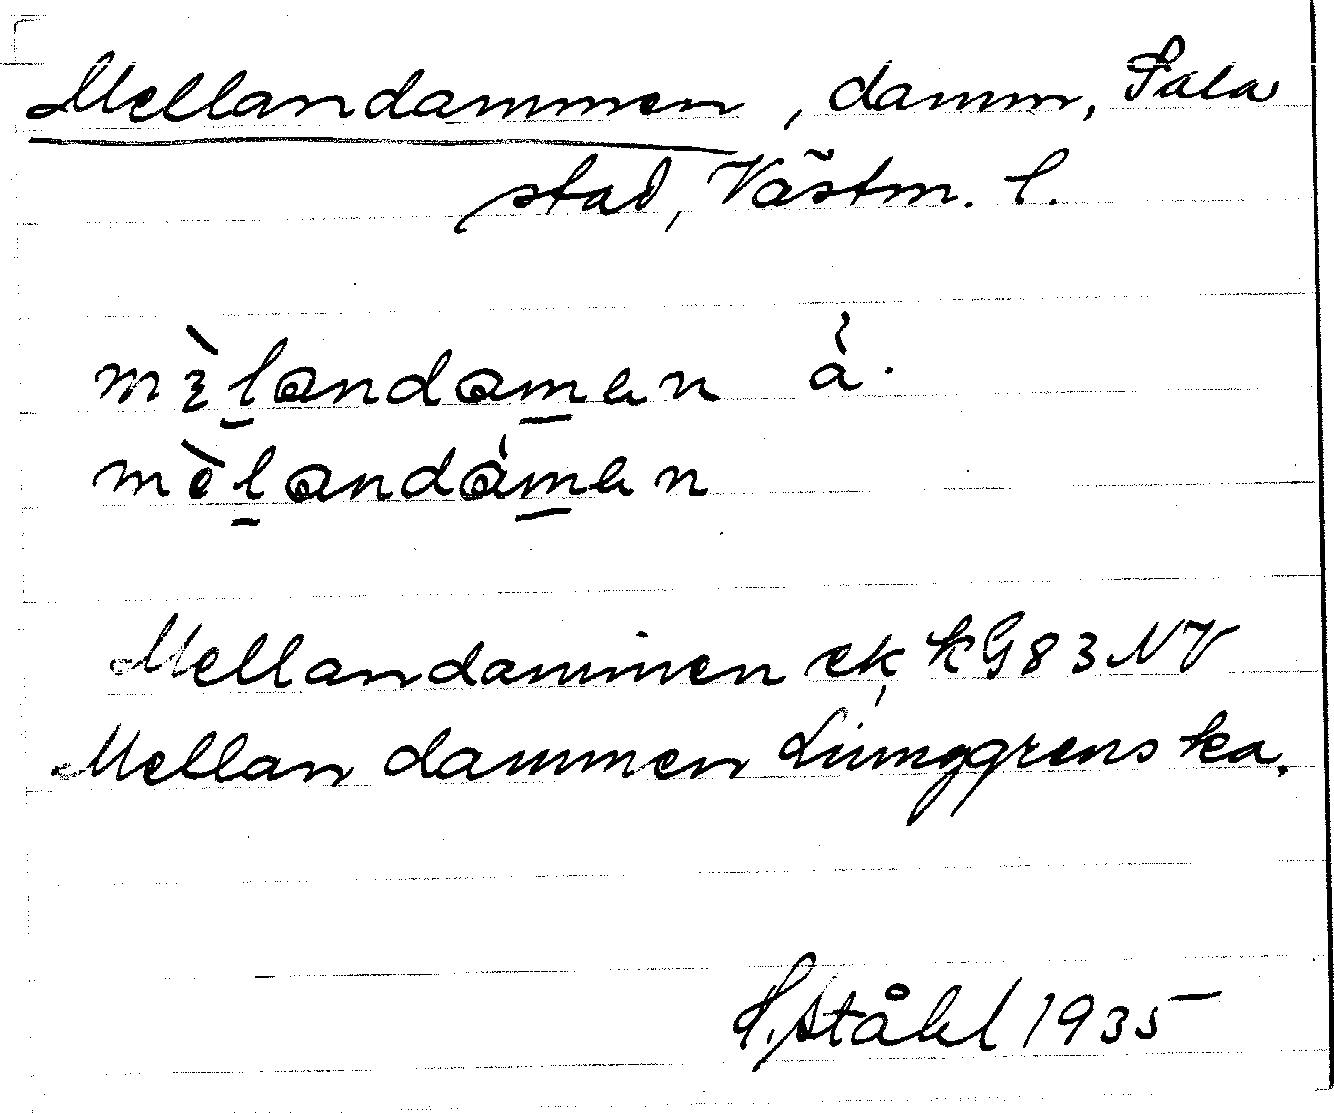 Mellandammen, damm, Sala
stad, Västm. l.
mɛ̀l̠andam̠ən á.
mèl̠andám̠ən
Mellandammen ek kG83NV
Mellan dammen Ljunggrens ka.
H. Ståhl 1935